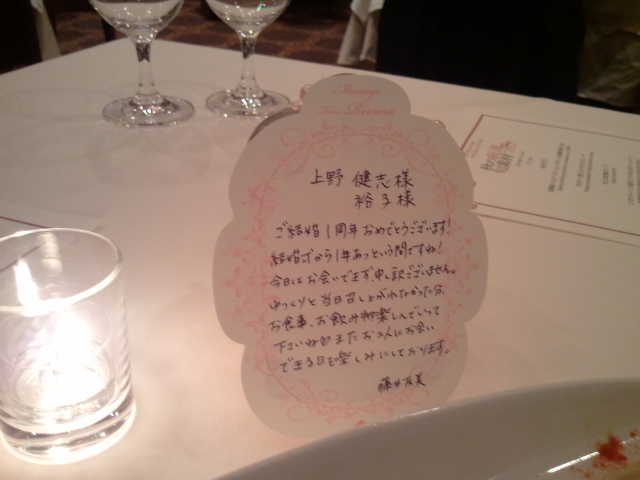 Mariage
Riviera
上野 健志様
裕子様
ご結婚1周年おめでとうございます!
結婚式から1年あっという間ですね!
今日はお会いできず、申し訳ございません。
ゆっくりと当日召し上がれなかった分、
お食事、お飲み物楽しんでいって
下さいね♡またお二人にお会い
できる日を楽しみにしております。
藤井友美